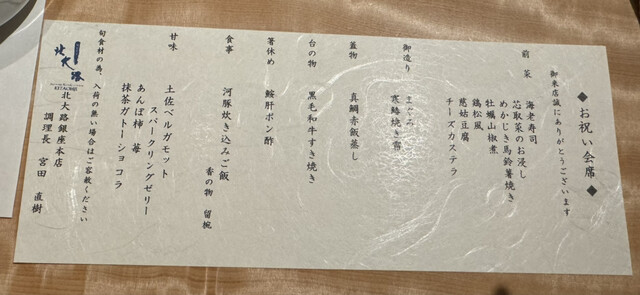 ◆お祝い会席◆
御来店誠にありがとうございます
前菜
海老寿司
芯取菜のお浸し
めかじき馬鈴薯焼き
牡蠣山椒煮
鶏松風
慈姑豆腐
チーズカステラ
御造り
寒鰆焼き霜
蓋物
真鯛赤飯蒸し
台の物
黒毛和牛すき焼き
箸休め
鮟肝ポン酢
食事
河豚炊き込みご飯
香の物 留椀
甘味
土佐ベルガモット
スパークリングゼリー
あんぽ柿 苺
抹茶ガトーショコラ
旬食材の為、入荷の無い場合はご容赦ください
北大路
KITAOHJI
北大路銀座本店
調理長 宮田 直樹